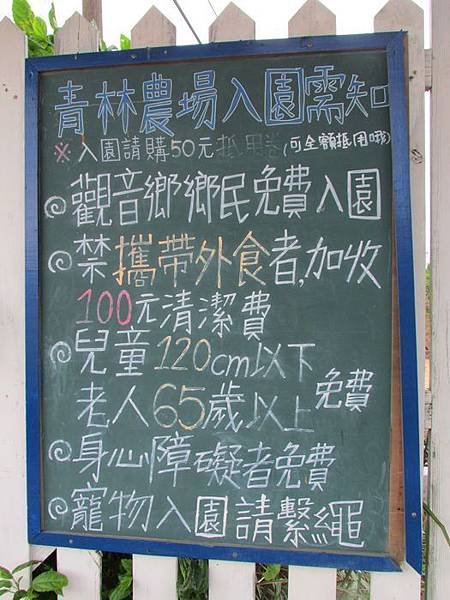 青林農場入園需知
※入園請購50元抵用券(可全額抵用哦)
觀音鄉鄉民免費入園
禁攜帶外食者,加收
100元清潔費
兒童120cm以下
老人65歲以上 免費
身心障礙者免費
寵物入園請繫繩